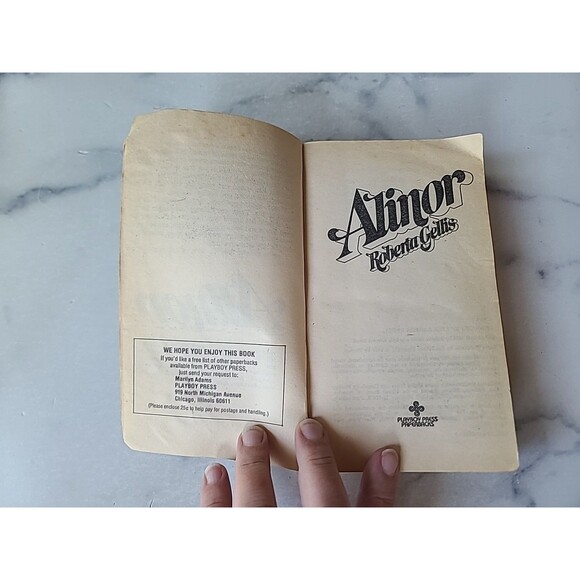 WE HOPE YOU ENJOY THIS BOOK
If you'd like a free list of other paperbacks
available from PLAYBOY PRESS,
just send your request to:
Marilyn Adams
PLAYBOY PRESS
919 North Michigan Avenue
Chicago, Illinois 60611
(Please enclose 25¢ to help pay for postage and handling.)
Alinor
Roberta Gellis
PLAYBOY PRESS
PAPERBACKS